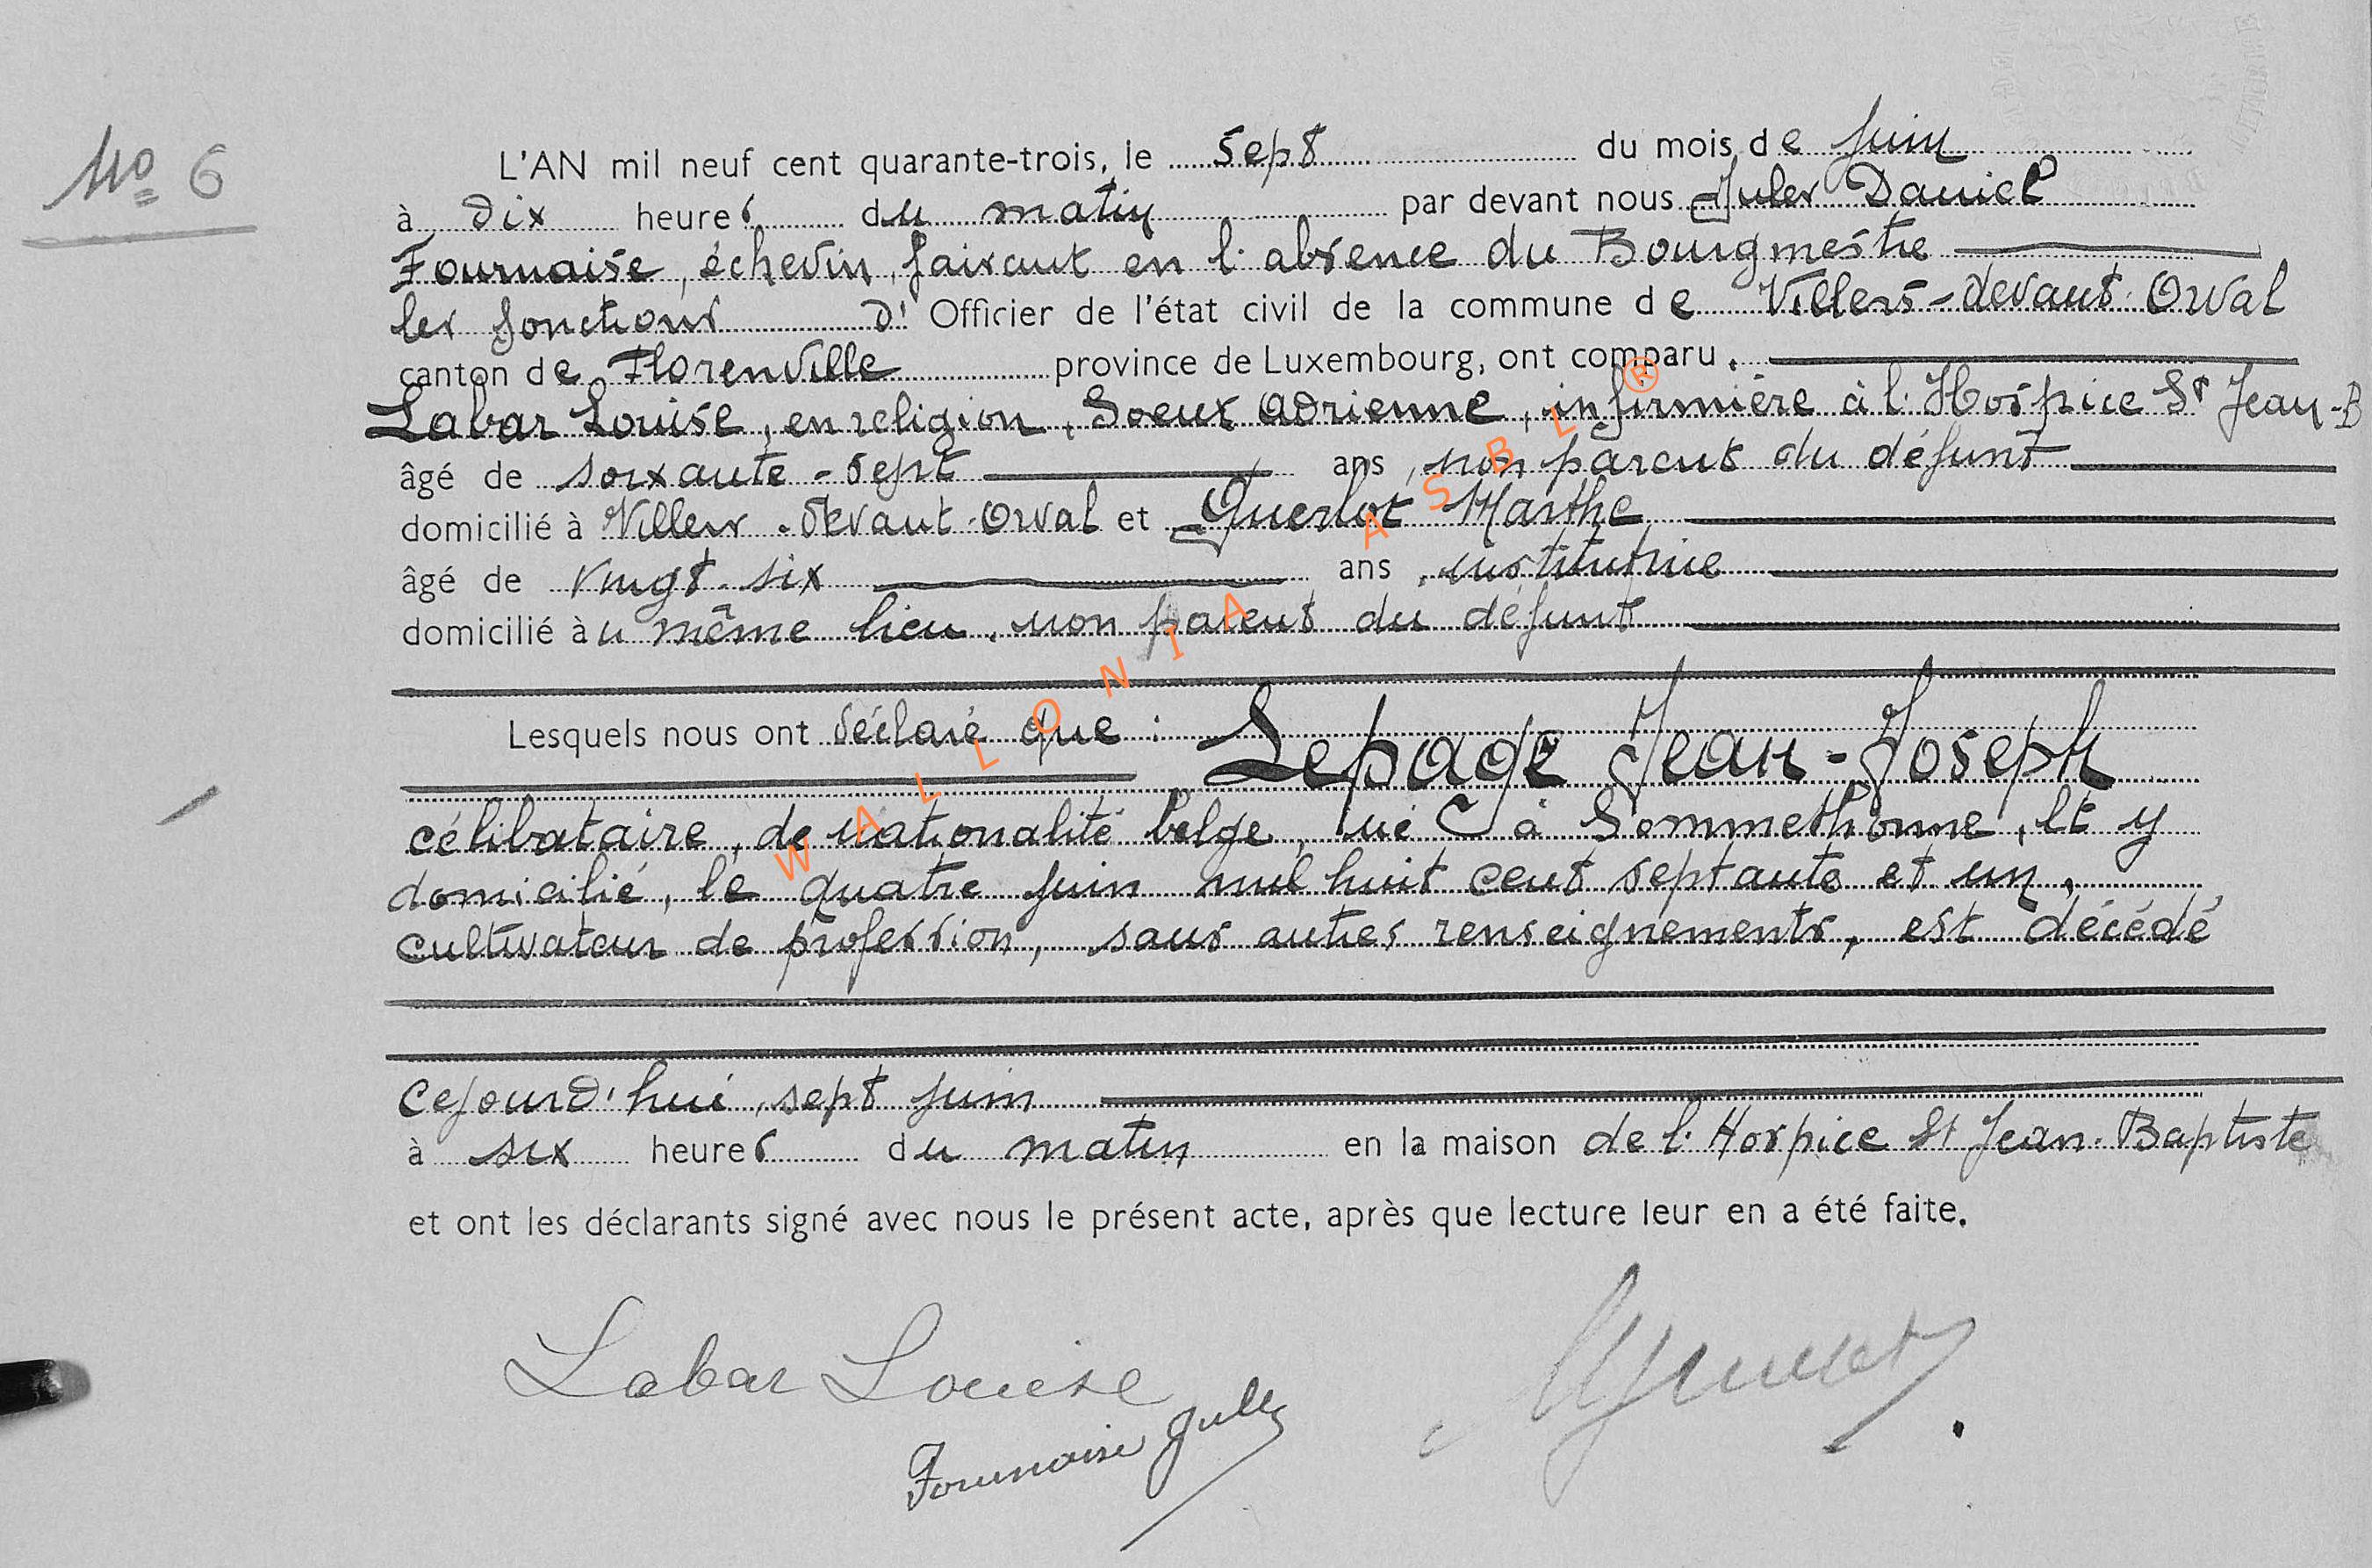 No 6
L'AN mil neuf cent quarante-trois, le sept du mois de juin
à dix heures du matin par devant nous Jules Daniel
Fournaise, échevin, faisant en l'absence du Bourgmestre
les fonctions d' Officier de l'état civil de la commune de Villers-devant-Orval
canton de Florenville province de Luxembourg, ont comparu.
Labar Louise, en religion, Soeur Adrienne, infirmière à l'Hospice St Jean-B
âgé de soixante-sept ans, non parent du défunt
domicilié à Villers-devant-Orval et Guerlot Marthe
âgé de vingt-six ans, institutrice
domicilié au même lieu, non parent du défunt
Lesquels nous ont déclaré que : Lepage Jean-Joseph
célibataire, de nationalité belge, né à Sommethonne, et y
domicilié, le quatre juin mil huit cent septante et un,
cultivateur de profession, sans autres renseignements, est décédé
cejourd'hui, sept juin
à six heures du matin en la maison de l'Hospice St Jean-Baptiste
et ont les déclarants signé avec nous le présent acte, après que lecture leur en a été faite.
Labar Louise
Fournaise Jules
WALLONIA ASBL ®